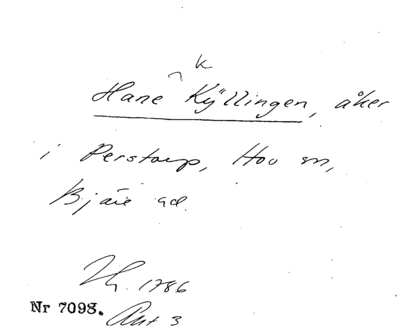 k
Hane Kÿllingen, åker
i Perstorp, Hov sn,
Bjäre hd.
Lh. 1786
Nr 7098.
Akt 3